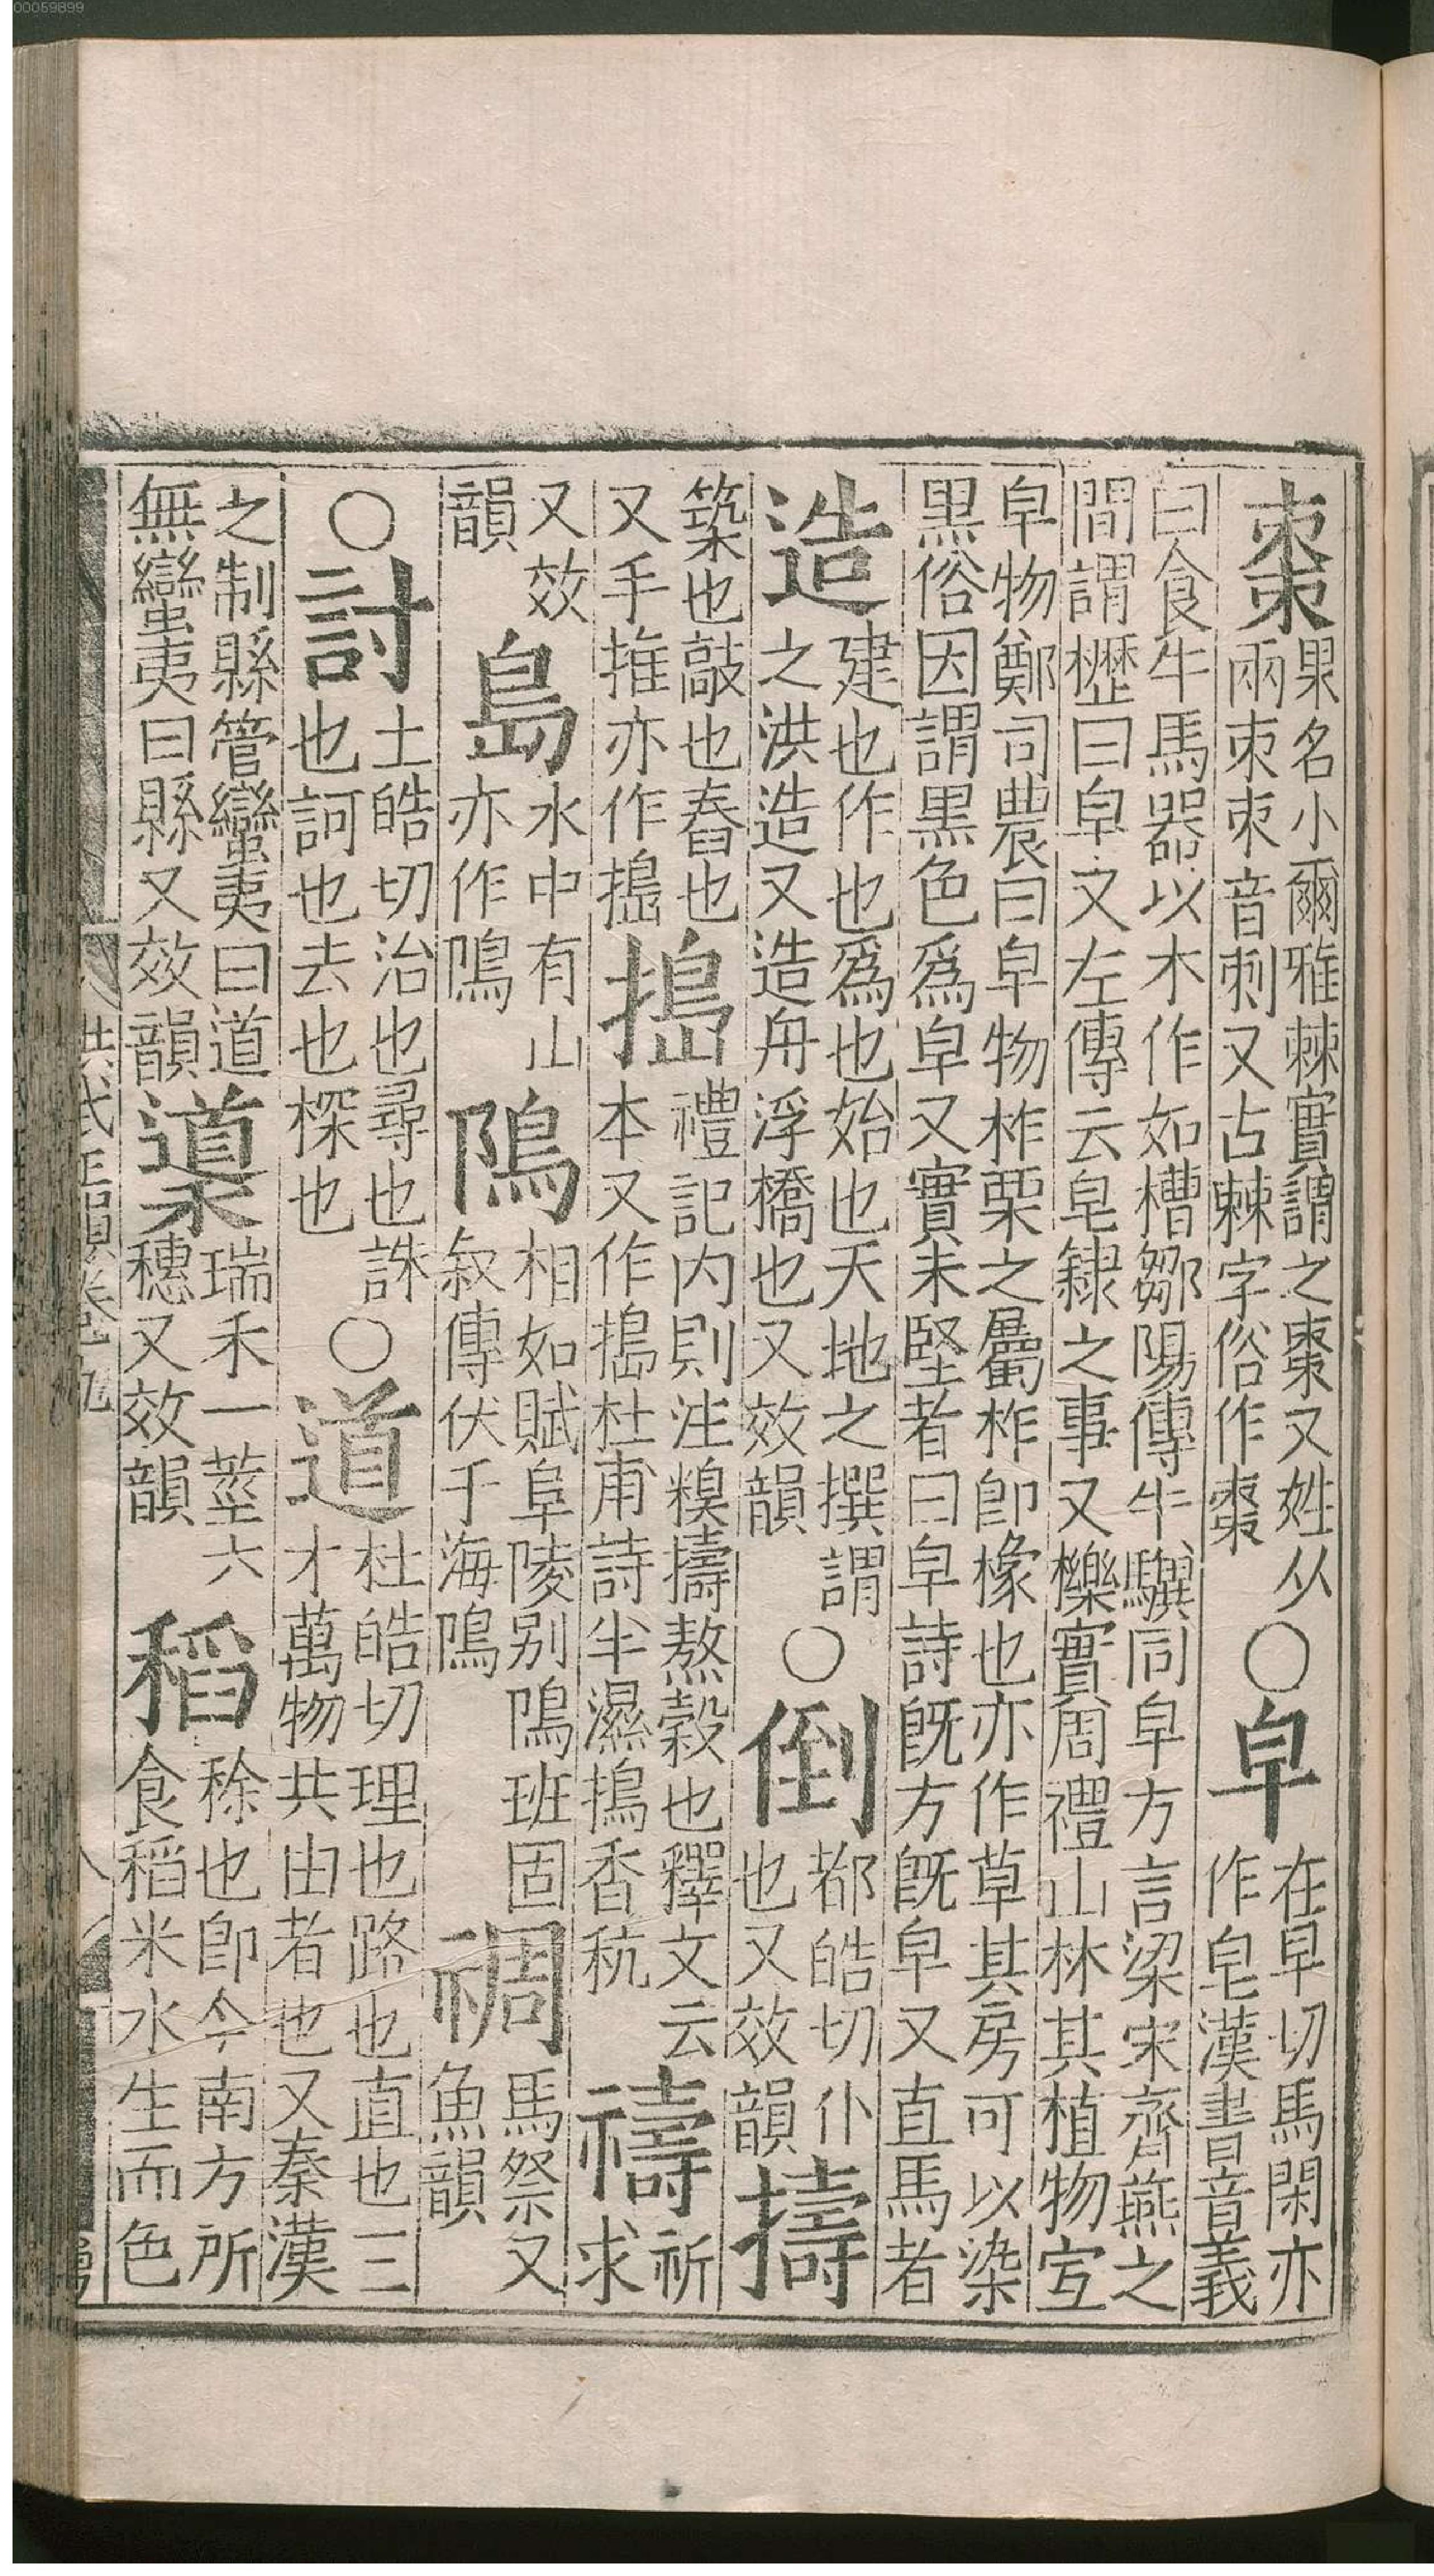 棗果名小爾雅棘實謂之棗又姓从兩朿朿音刺又古棘字俗作棗○皁在早切馬閑亦作皂漢書音義
曰食牛馬器以木作如槽鄒陽傳牛驥同皁方言梁宋齊燕之間謂櫪曰皁文左傳云皂隸之事又櫟實周禮山林其植物宜
皁物鄭司農曰皁物柞栗之屬柞卽橡也亦作草其房可以染黑俗因謂黑色爲皁又實未堅者曰皁詩旣方旣皁又直馬者
造建也作也爲也始也天地之撰謂之洪造又造舟浮橋也又效韻○倒都皓切仆也又效韻擣
築也敲也舂也又手推亦作㩶㩶禮記内則注糗擣熬穀也釋文云本又作㩶杜甫詩半濕搗香秔禱祈求
又效韻島水中有山亦作隝隝相如賦阜陵别隝班固叙傳伏于海隝禂馬祭又魚韻
○討土皓切治也尋也誅也訶也去也探也○道杜皓切理也路也直也三才萬物共由者也又秦漢
之制縣管蠻夷曰道無蠻夷曰縣又效韻䆃瑞禾一莖六穗又效韻稻稌也卽今南方所食稻米水生而色
洪武正韻卷之九